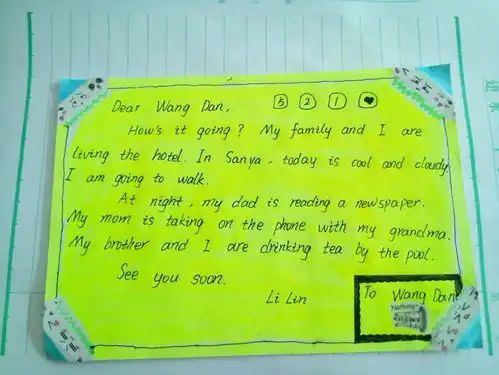 Dear Wang Dan, 5 2 1 ♥
How's it going? My family and I are
living the hotel. In Sanya, today is cool and cloudy.
I am going to walk.
At night, my dad is reading a newspaper.
My mom is taking on the phone with my grandma.
My brother and I are drinking tea by the pool.
See you soon.
Li Lin
To Wang Dan
Nothing